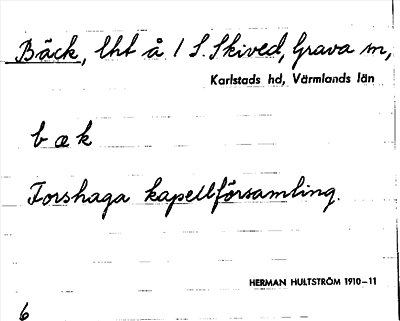 Bäck, lht å 1 S. Skived, Grava sn,
Karlstads hd, Värmlands län
bæk
Forshaga kapellförsamling.
HERMAN HULTSTRÖM 1910–11
6